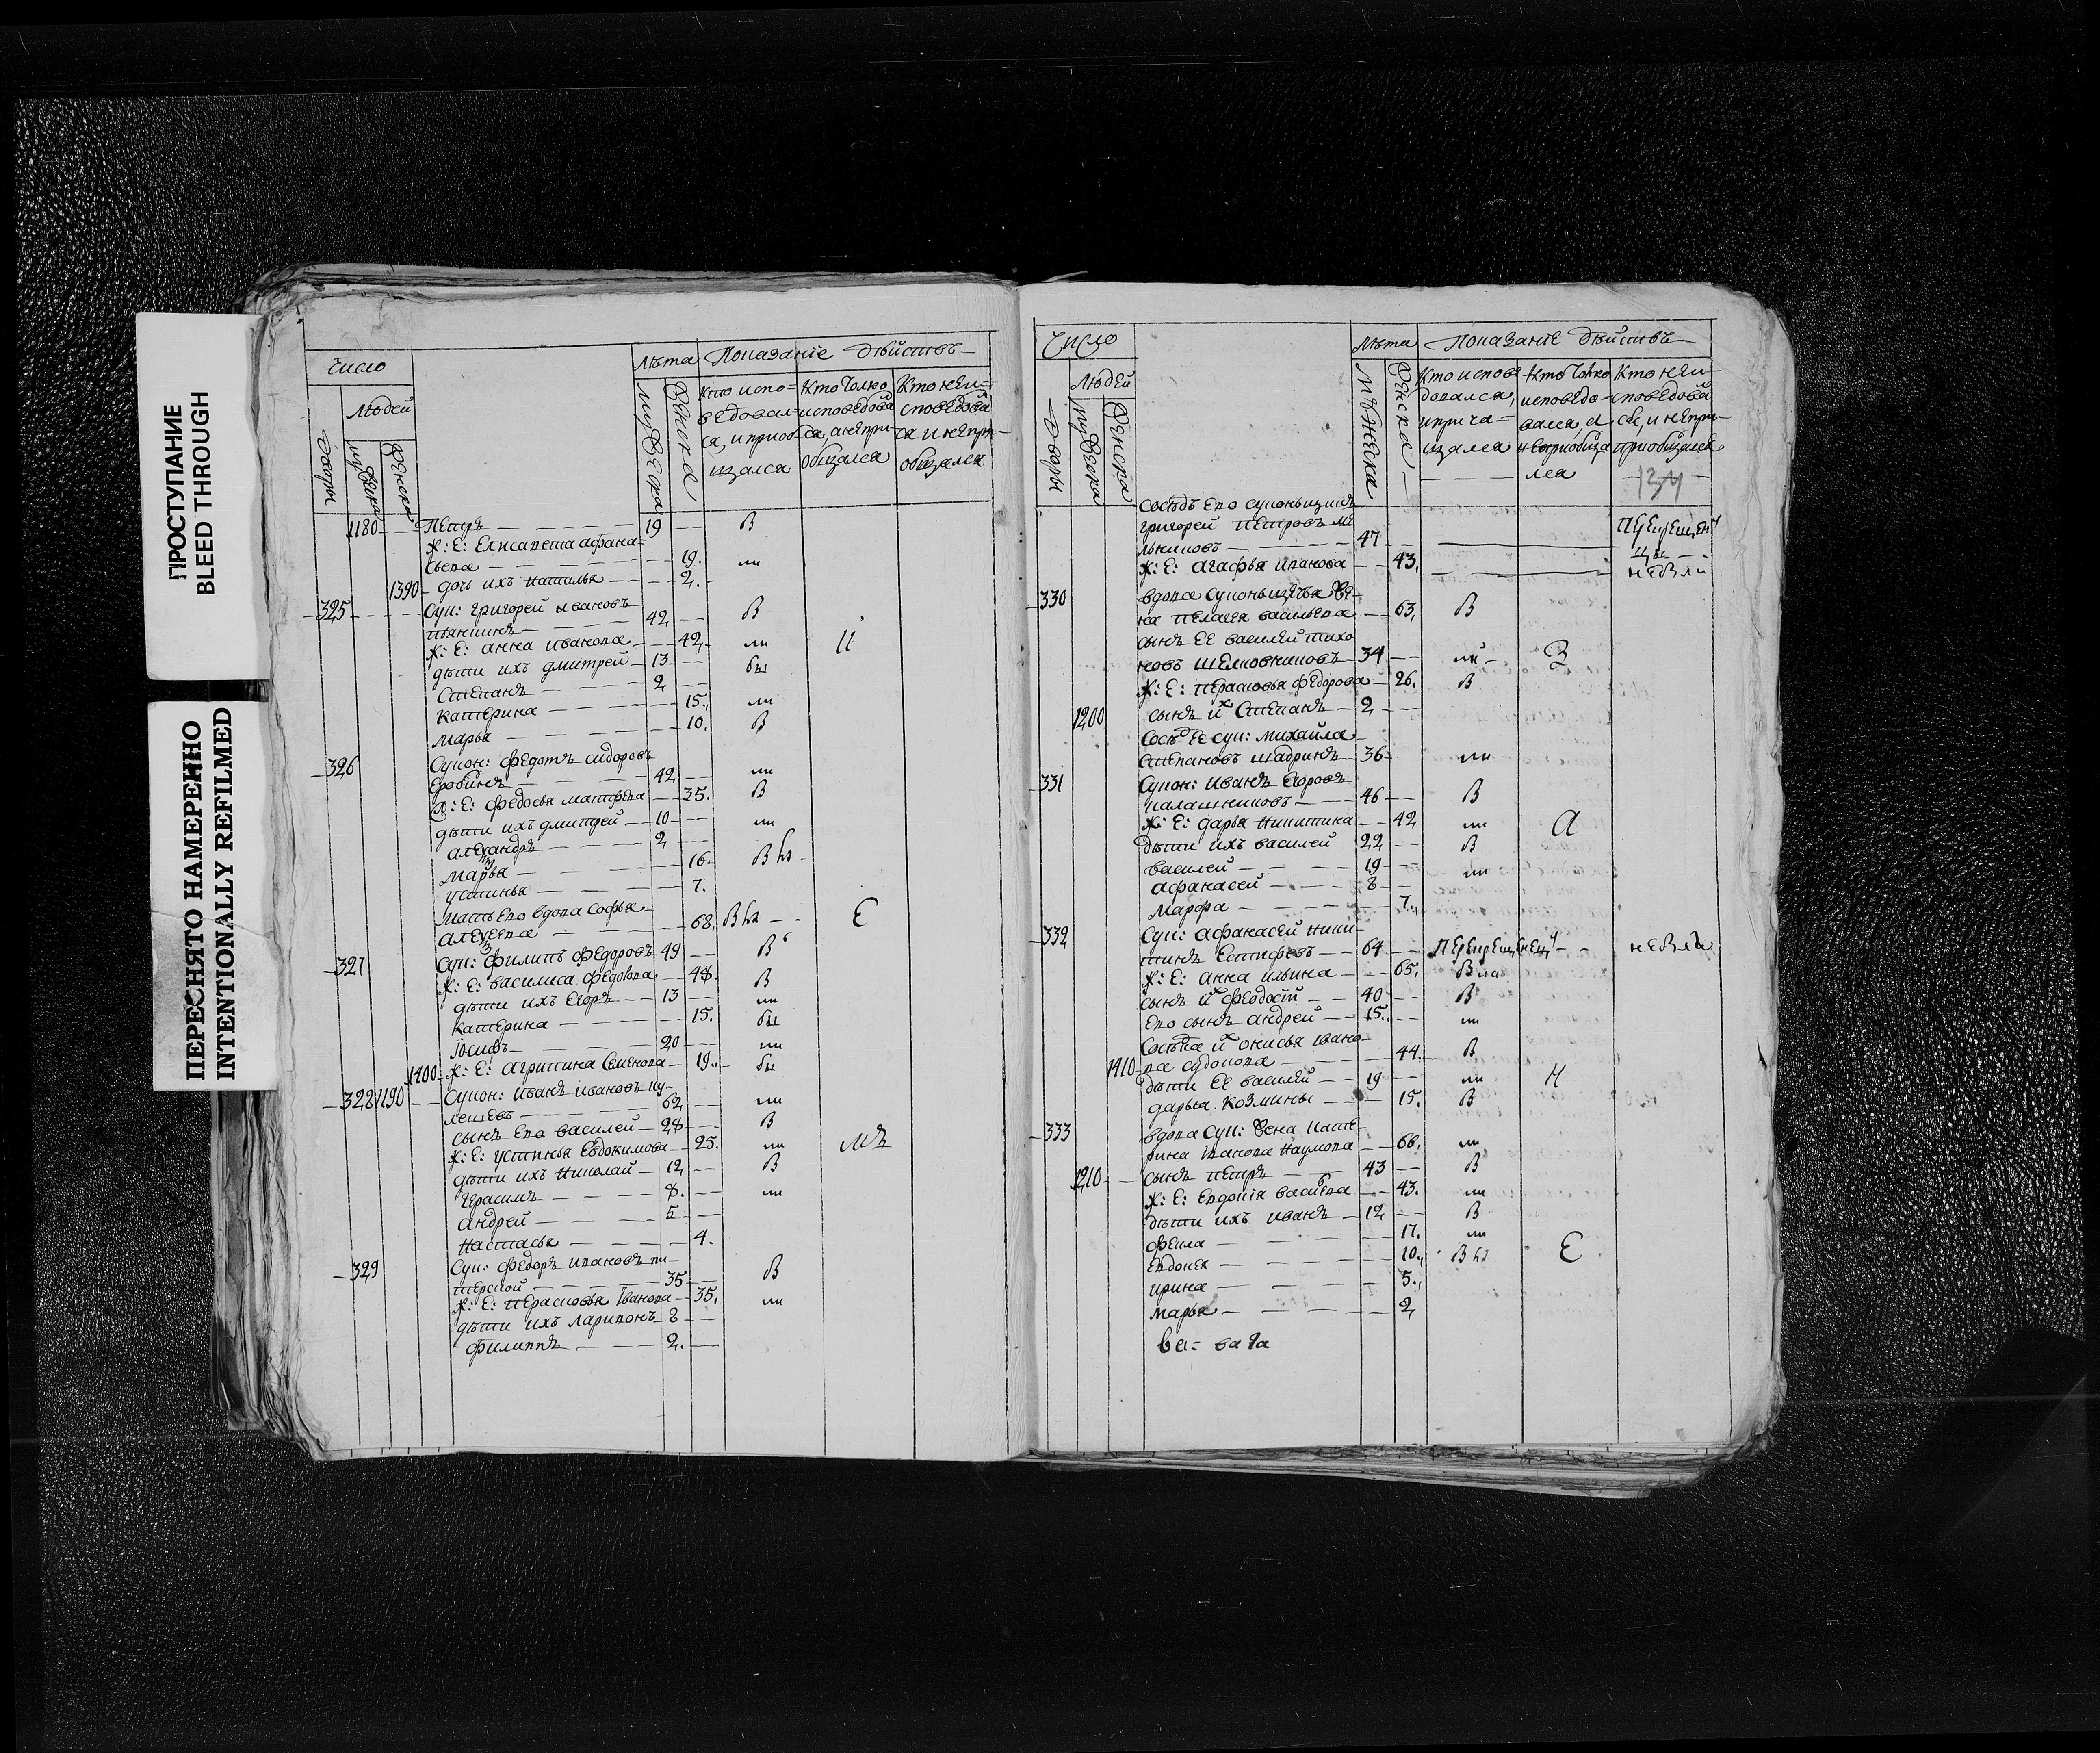 ПРОСТУПАНИЕ
BLEED THROUGH
ПЕРЕСНЯТО НАМЕРЕННО
INTENTIONALLY REFILMED
число
Лѣта Показанїе дѣйствъ
Людей
Дворы
мужеска
женска
мужеска
женска
Кто испо=
ведовал=
ся, и приоб
щался
Кто только
исповедова
ся, а непри=
общался
Кто неи=
споведова
ся и непри=
общался
1180 Петръ 19 В
ж: Е: Елисавета афана=
сьева 19. ли
1390 дочь ихъ наталья 2.
325 Суп: григорей ивановъ
42 В
ж: Е: анна иванова 42. ли
дѣти ихъ дмитрей 13 бы
Степанъ 2
катерина 15. ли
марья 10. В
326 Супон: федотъ сидоровъ
42 ли
ж: Е: федосья матфева 35. В
дѣти ихъ дмитрей 10 ли
алеѯандръ 2
марья 16.
устинья 7.
мать его вдова софья
алеѯеева 68.
Е
327 Суп: филипъ федоровъ 49 В
ж: Е: василиса федорова 48. В
дѣти ихъ Егоръ 13 ли
катерина 15. бы
Їосифъ 20 ли
1400 ж: Е: агрипина Семенова 19. бы
328 1190 Супон: иванъ ивановъ ку-
лешевъ 62 ли
сынъ его василей 28 В
ж: Е: устинья Евдокимова 25. ли
дѣти ихъ николай 12 В
Герасимъ 8. ли
андрей 5
настасья 4.
329 Суп: федоръ ивановъ пи-
терской 35 В
ж: Е: перасковья Їванова 35. ли
дѣти ихъ ларионъ 8
филиппъ 2.
число
Лѣта Показанїе дѣйствъ
Людей
Дворы
мужеска
женска
мужеска
женска
Кто испове
довался,
и прича=
щался
Кто только
исповедо-
вался, а
неприобща
лся
Кто неи-
споведова
ся, и непри-
приобщался
134
Сосѣдъ его
григорей петровъ ме
льниковъ 47
ж: Е: агафья иванова 43.
330 вдова же-
на пелагея васильева 63, В
сынъ ее василей тихо
новъ шелковниковъ 34 ли З
ж: Е: перасковья федорова 26. В
1200 сынъ их Степанъ 2
Сосѣд ее суп: михайла
Степановъ шадринъ 36 ли
331 Супон: иванъ Егоровъ
калашниковъ 46 В
ж: Е: дарья никитина 42 ли
дѣти ихъ василей 22 В
василей 19 ли
афанасей 8
марфа 7.
332 Суп: афанасей ники-
тинъ Естифѣевъ 64
ж: Е: анна ильина 65.
сынъ их феодосїй 40 В
его сынъ андрей 15. ли
Сосѣдка их анисья ївано-
1410 ва судокова 44. В
дѣти ее василей 19 ли Н
дарья козмины 15. В
333 вдова Суп: жена кате-
рина їванова наумова 66. ли
1210 сынъ петръ 43 В
ж: Е: Евдокїя василева 43. ли
дѣти ихъ иванъ 12 В
фекла 17. ли
Евдокея 10. Е
ирина 5.
марья 2